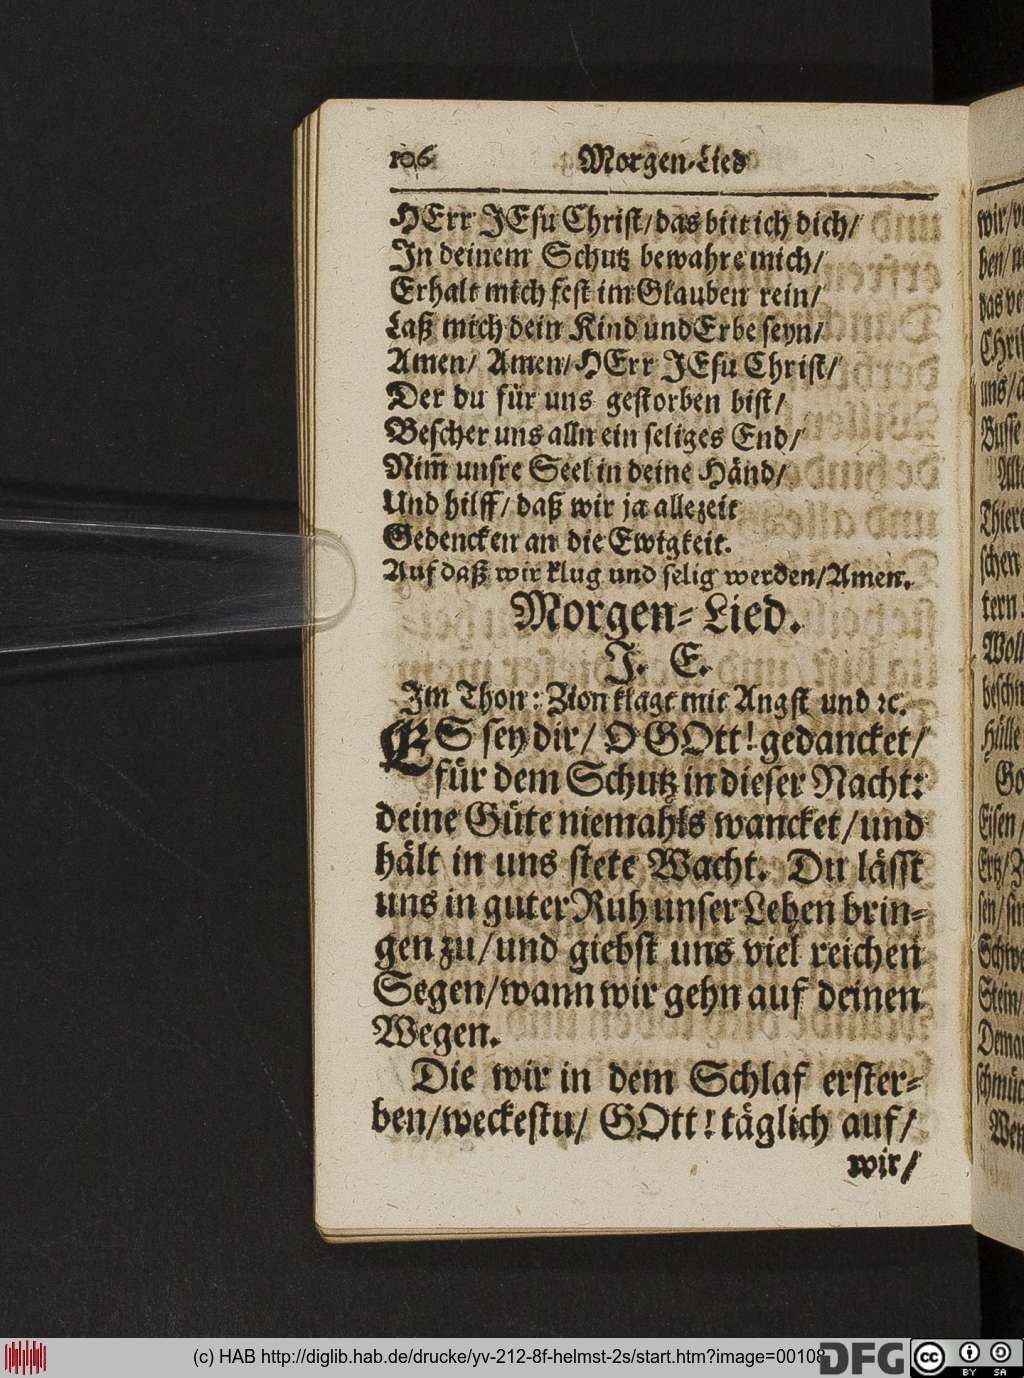 106 Morgen-Lied
HErr JEsu Christ/das bitt ich dich/
In deinem Schutz bewahre mich/
Erhalt mich fest im Glauben rein/
Laß mich dein Kind und Erbe seyn/
Amen/ Amen/HErr JEsu Christ/
Der du für uns gestorben bist/
Bescher uns alln ein seliges End/
Nim̃ unsre Seel in deine Händ/
Und hilff/ daß wir ja allezeit
Gedencken an die Ewigkeit.
Auf daß wir klug und selig werden/Amen.
Morgen-Lied.
J. E.
Im Thon: Zion klagt mit Angst und ꝛc.
ES sey dir/ O GOtt! gedancket/
für dem Schutz in dieser Nacht:
deine Güte niemahls wancket/und
hält in uns stete Wacht. Du lässt
uns in guter Ruh unser Leben brin-
gen zu/und giebst uns viel reichen
Segen/wann wir gehn auf deinen
Wegen.
Die wir in dem Schlaf erster-
ben/weckestu/ GOtt! täglich auf/
wir/
wir/
ben/
das
CHri
uns/
Busse
Alle
Thiere
schen
tern
Woll
beschn
Hülle
Go
Eisen/
Ertz/
sen/
Schwe
Stein/
Dema
schmüc
Wen
(c) HAB http://diglib.hab.de/drucke/yv-212-8f-helmst-2s/start.htm?image=00108
DFG
cc BY SA